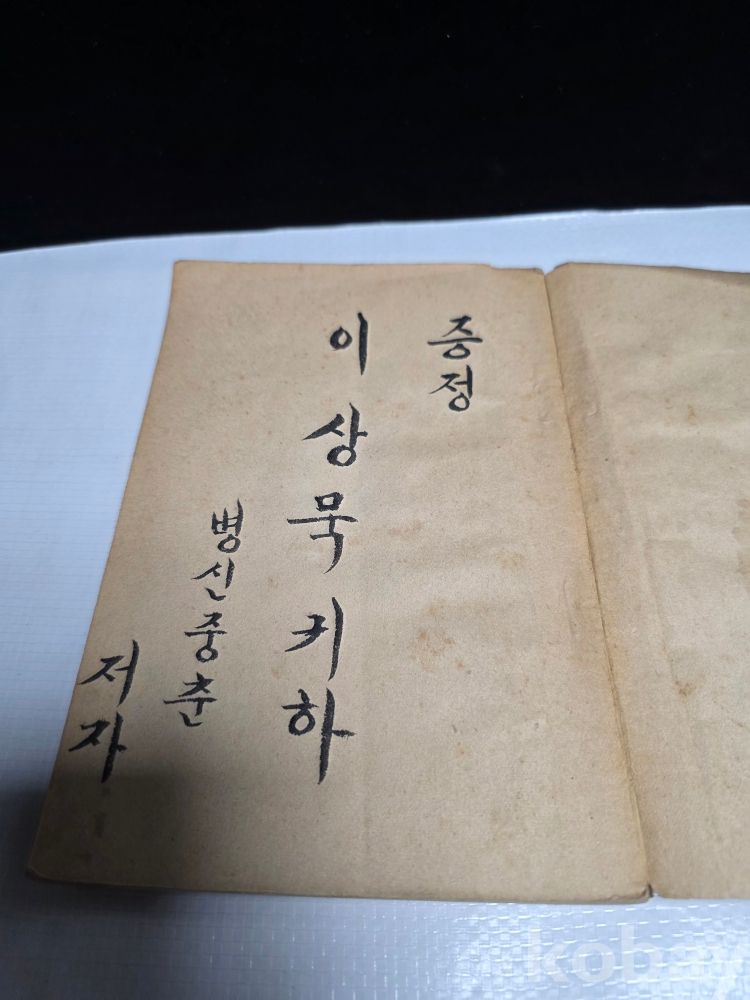 증정
이상묵 키하
병신중춘
저자
kobay